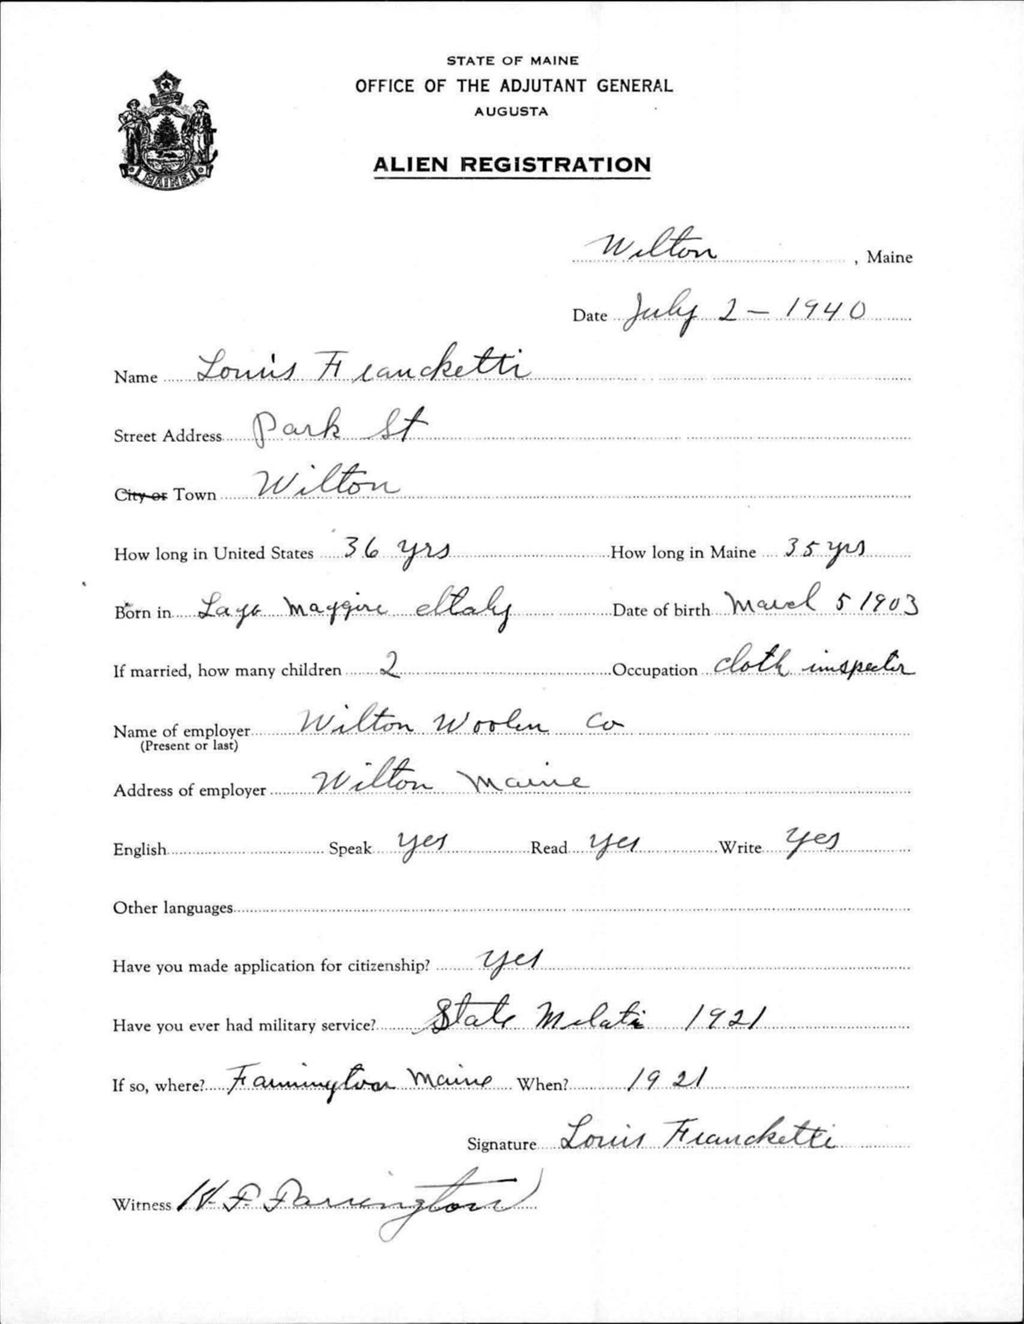 STATE OF MAINE
OFFICE OF THE ADJUTANT GENERAL
AUGUSTA
ALIEN REGISTRATION
MAINE
Wilton, Maine
Date July 2 - 1940
Name Louis Francketti
Street Address Park St
City or Town Wilton
How long in United States 36 yrs How long in Maine 35 yrs
Born in Lago Maggire Italy Date of birth March 5 1903
If married, how many children 2 Occupation cloth inspector
Name of employer Wilton Woolen Co
(Present or last)
Address of employer Wilton Maine
English Speak yes Read yes Write yes
Other languages
Have you made application for citizenship? yes
Have you ever had military service? State Melatia 1921
If so, where? Farmington Maine When? 1921
Signature Louis Francketti
Witness H. F. Farrington